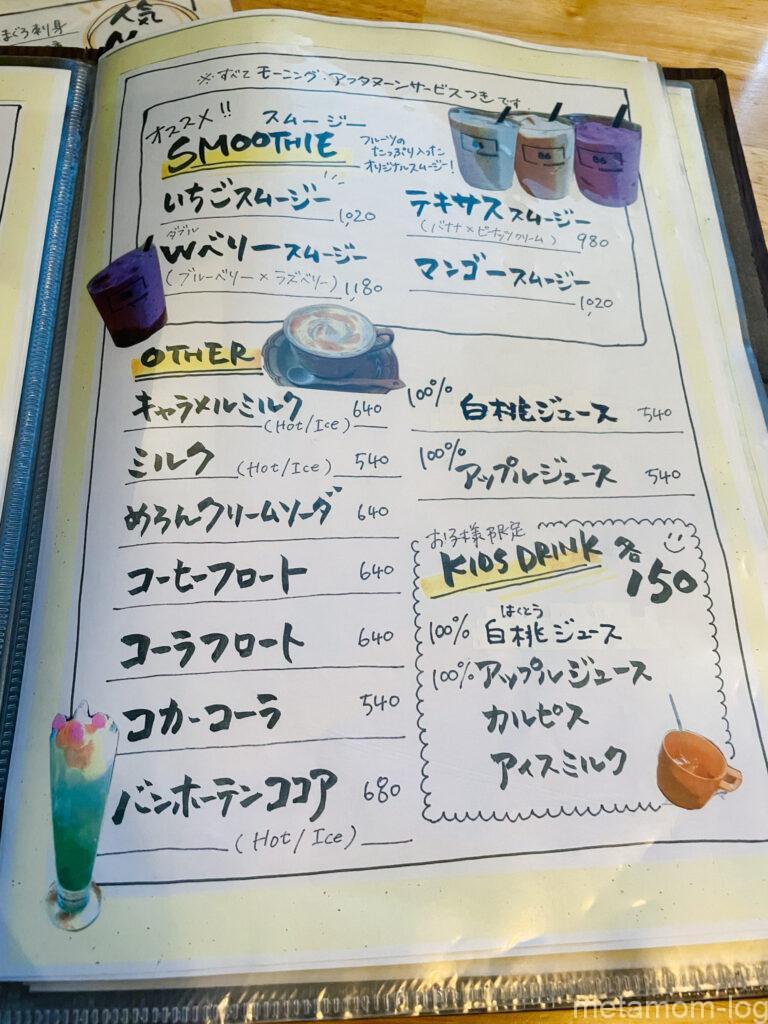 人気
まぐろ刺身
※すべてモーニング・アフタヌーンサービスつきです。
オススメ!!
スムージー
SMOOTHIE
フルーツの
たっぷり入った
オリジナルスムージー!
いちごスムージー
1,020
テキサススムージー
(バナナ×ピーナッツクリーム) 980
ダブル
Wベリースムージー
(ブルーベリー×ラズベリー) 1,180
マンゴースムージー
1,020
OTHER
キャラメルミルク 640
(Hot/Ice)
ミルク (Hot/Ice) 540
めろんクリームソーダ 640
コーヒーフロート 640
コーラフロート 640
コカ・コーラ 540
バンホーテンココア 680
(Hot/Ice)
100% 白桃ジュース 540
100% アップルジュース 540
お子様限定
KIDS DRINK 各150
はくとう
100% 白桃ジュース
100% アップルジュース
カルピス
アイスミルク
metamom-log